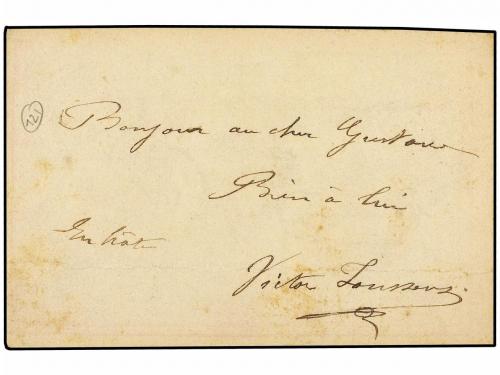 121
Bonjour au cher Gustave
Bien à lui
En hâte
Victor